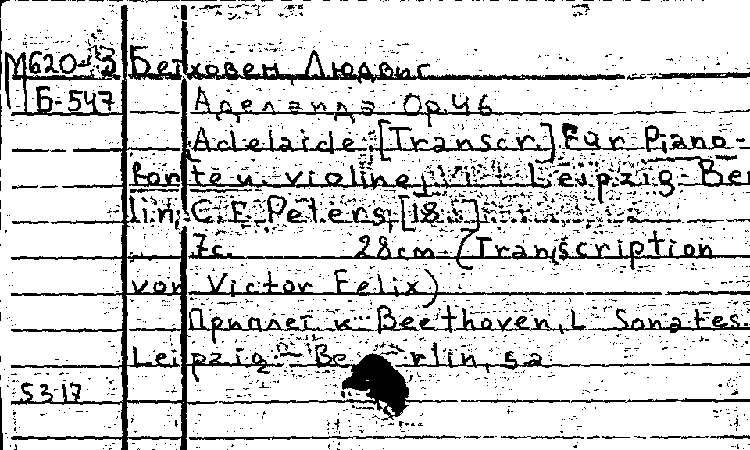 М620-3 Бетховен, Людвиг
Б-547 Аделаида Op.46
[Adelaide. [Transcr.] für Piano-
forte u. violine, Leipzig-Ber
lin, C. F. Peters, [18..]
7c. 28cm (Transcription
von Victor Felix)
Приплет к: Beethoven, L Sonates.
Leipzig-Berlin, s.a
5317